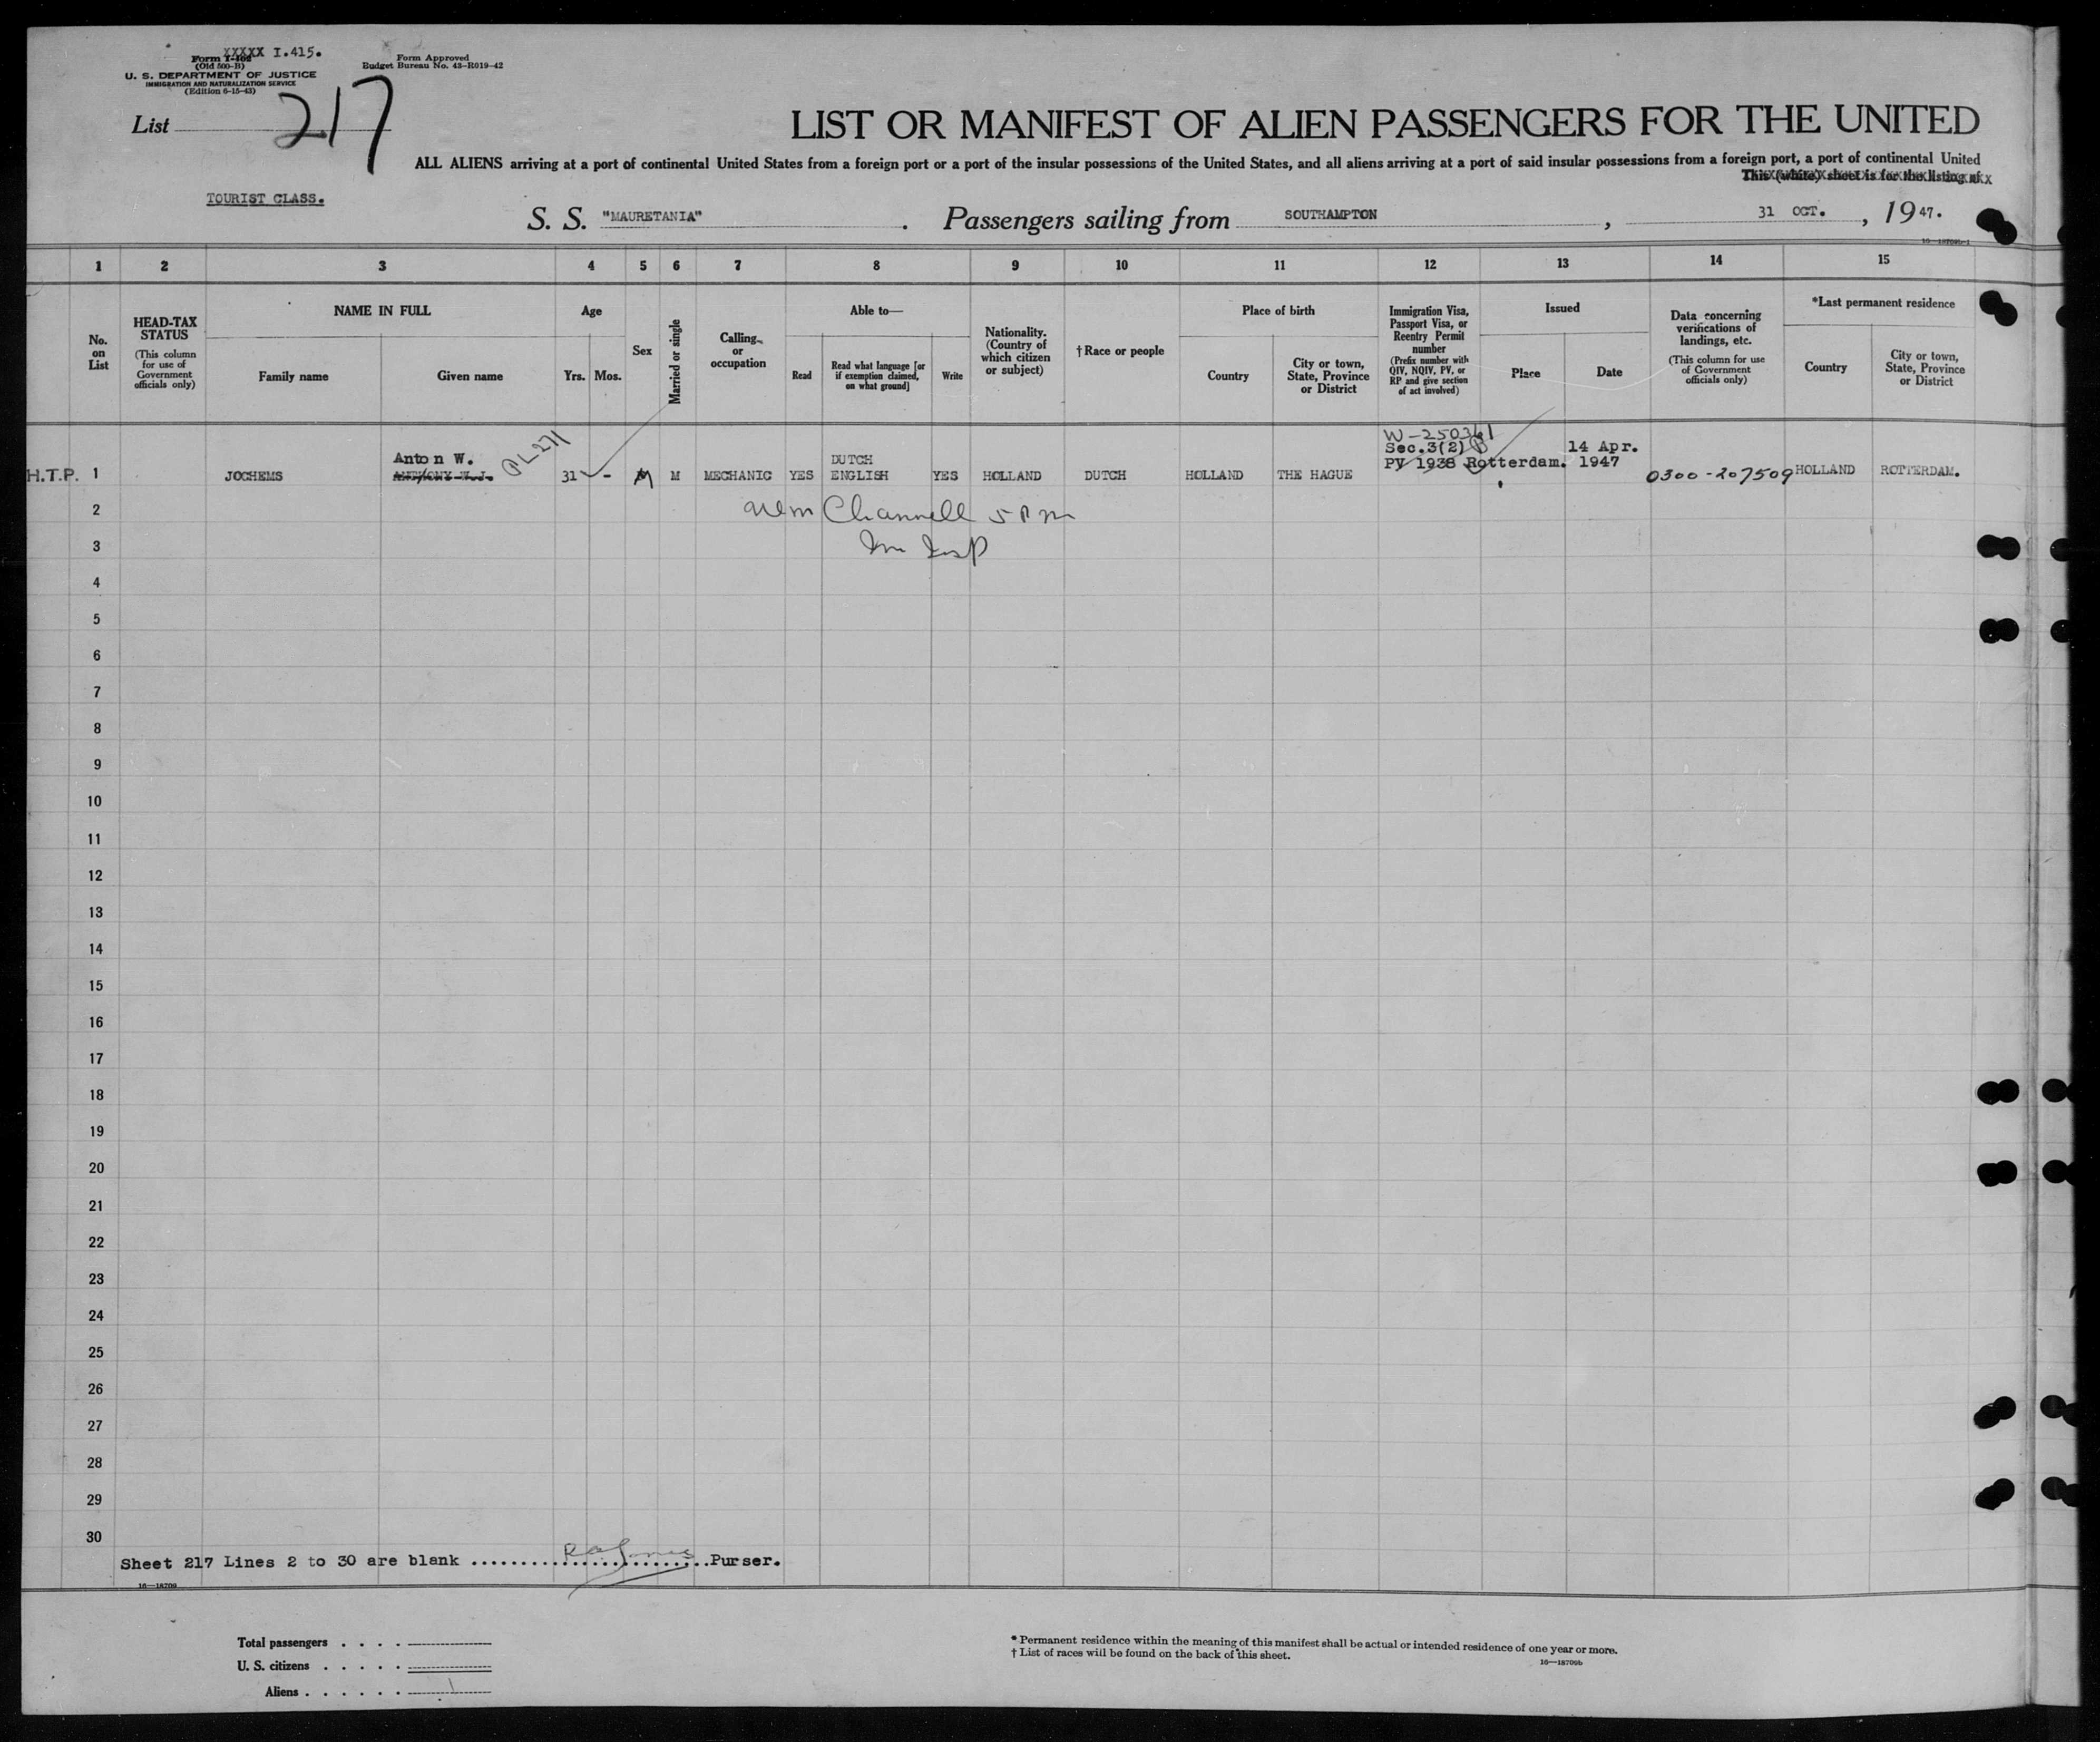 Form I-415.
(Old 500-B)
U. S. DEPARTMENT OF JUSTICE
IMMIGRATION AND NATURALIZATION SERVICE
(Edition 6-15-43)
Form Approved
Budget Bureau No. 43-R019-42
List 217
LIST OR MANIFEST OF ALIEN PASSENGERS FOR THE UNITED
ALL ALIENS arriving at a port of continental United States from a foreign port or a port of the insular possessions of the United States, and all aliens arriving at a port of said insular possessions from a foreign port, a port of continental United
This (white) sheet is for the listing of
TOURIST CLASS.
S. S. "MAURETANIA". Passengers sailing from SOUTHAMPTON, 31 OCT., 1947.
16—18709b-1
1 2 3 4 5 6 7 8 9 10 11 12 13 14 15
No. on List
HEAD-TAX STATUS
(This column for use of Government officials only)
NAME IN FULL
Family name
Given name
Age
Yrs. Mos.
Sex
Married or single
Calling or occupation
Able to—
Read
Read what language [or if exemption claimed, on what ground]
Write
Nationality. (Country of which citizen or subject)
† Race or people
Place of birth
Country
City or town, State, Province or District
Immigration Visa, Passport Visa, or Reentry Permit number
(Prefix number with QIV, NQIV, PV, or RP and give section of act involved)
Issued
Place
Date
Data concerning verifications of landings, etc.
(This column for use of Government officials only)
*Last permanent residence
Country
City or town, State, Province or District
W-250361
Anton W. PL-271 DUTCH Sec.3(2) B 14 Apr.
H.T.P. 1 JOCHEMS ANTHONY W.J. 31 - M M MECHANIC YES ENGLISH YES HOLLAND DUTCH HOLLAND THE HAGUE PV 1938 Rotterdam. 1947 0300-207509 HOLLAND ROTTERDAM.
2 Channell 5 PM
3 Im Insp
4
5
6
7
8
9
10
11
12
13
14
15
16
17
18
19
20
21
22
23
24
25
26
27
28
29
30
Sheet 217 Lines 2 to 30 are blank ........................Purser.
16—18709
Total passengers . . . .
U. S. citizens . . . . .
Aliens . . . . . . 1
* Permanent residence within the meaning of this manifest shall be actual or intended residence of one year or more.
† List of races will be found on the back of this sheet.
16—18709b